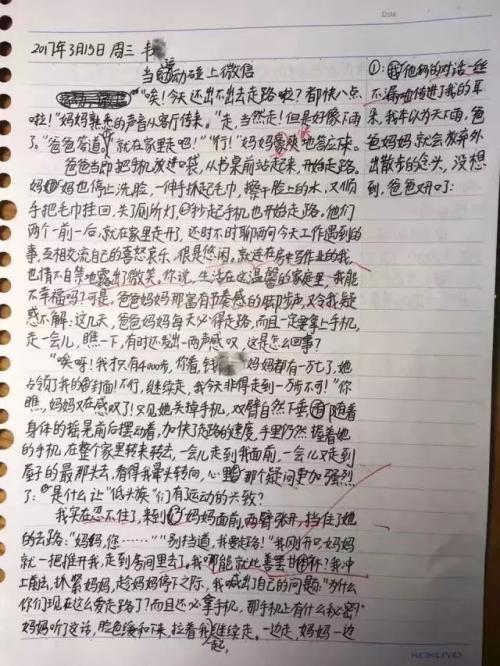 2017年3月15日 周三 丰
当运动碰上微信
"唉!今天还出不出去走路啦?都快八点
啦!"妈妈熟悉的声音从客厅传来。"走,当然走!但是好像下雨
了。"爸爸答道,"就在家里走吧!""行!"妈妈爽快地答应了。
爸爸当即把手机放进口袋,从书桌前站起来,开始走路。
妈妈也停止洗脸,一伸手抓起毛巾,擦干脸上的水,又顺
手把毛巾挂回,关了厕所灯,抄起手机也开始走路。他们
两个一前一后,就在家里走开了,还时不时聊两句今天工作遇到的
事,互相交流自己的喜怒哀乐,很是悠闲,就连在房中写作业的我,
也情不自禁地露出了微笑。你说,生活在这温馨的家庭里,我能
不幸福吗?可是,爸爸妈妈那富有节奏感的脚步声,又令我疑
惑不解:这几天,爸爸妈妈每天必得走路,而且一定要拿上手机,
走一会儿,瞧一下,有时还发出一两声感叹,这是怎么回事?
"唉呀!我才只有4000步,你看,钱 妈妈都有一万七了,她
占领了我的封面!不行,继续走,我今天非得走到一万步不可!"你
瞧,妈妈又在感叹了!只见她关掉手机,双臂自然下垂,随着
身体的摇晃前后摆动着,加快了走路的速度,手里仍然握着她
的手机,在整个家里转来转去,一会儿走到我面前,一会儿又走到
屋子的最那头去,看得我晕头转向,心里那个疑问更加强烈
了:是什么让"低头族"们有运动的兴致?
我实在忍不住了,来到妈妈面前,两臂张开,挡住了她
的去路:"妈妈,您……""别挡道,我要走路!"我刚开口,妈妈
就一把推开我,走到房间里去了,我哪能就此善罢甘休?我冲
上前去,抓紧妈妈,趁妈妈停下之际,我喊出了自己的问题:"为什么
你们现在这么爱走路了?而且还必拿手机,那手机上有什么秘密?"
妈妈听了这话,脸色缓和下来,拉着我继续走。一边走,妈妈一边
一起,
①:他们的对话一丝
不漏地传进了我的耳
朵,我本以为天下雨,爸
爸妈妈就会放弃外
出散步的念头,没想
到,爸爸开口了:
KOKUYO